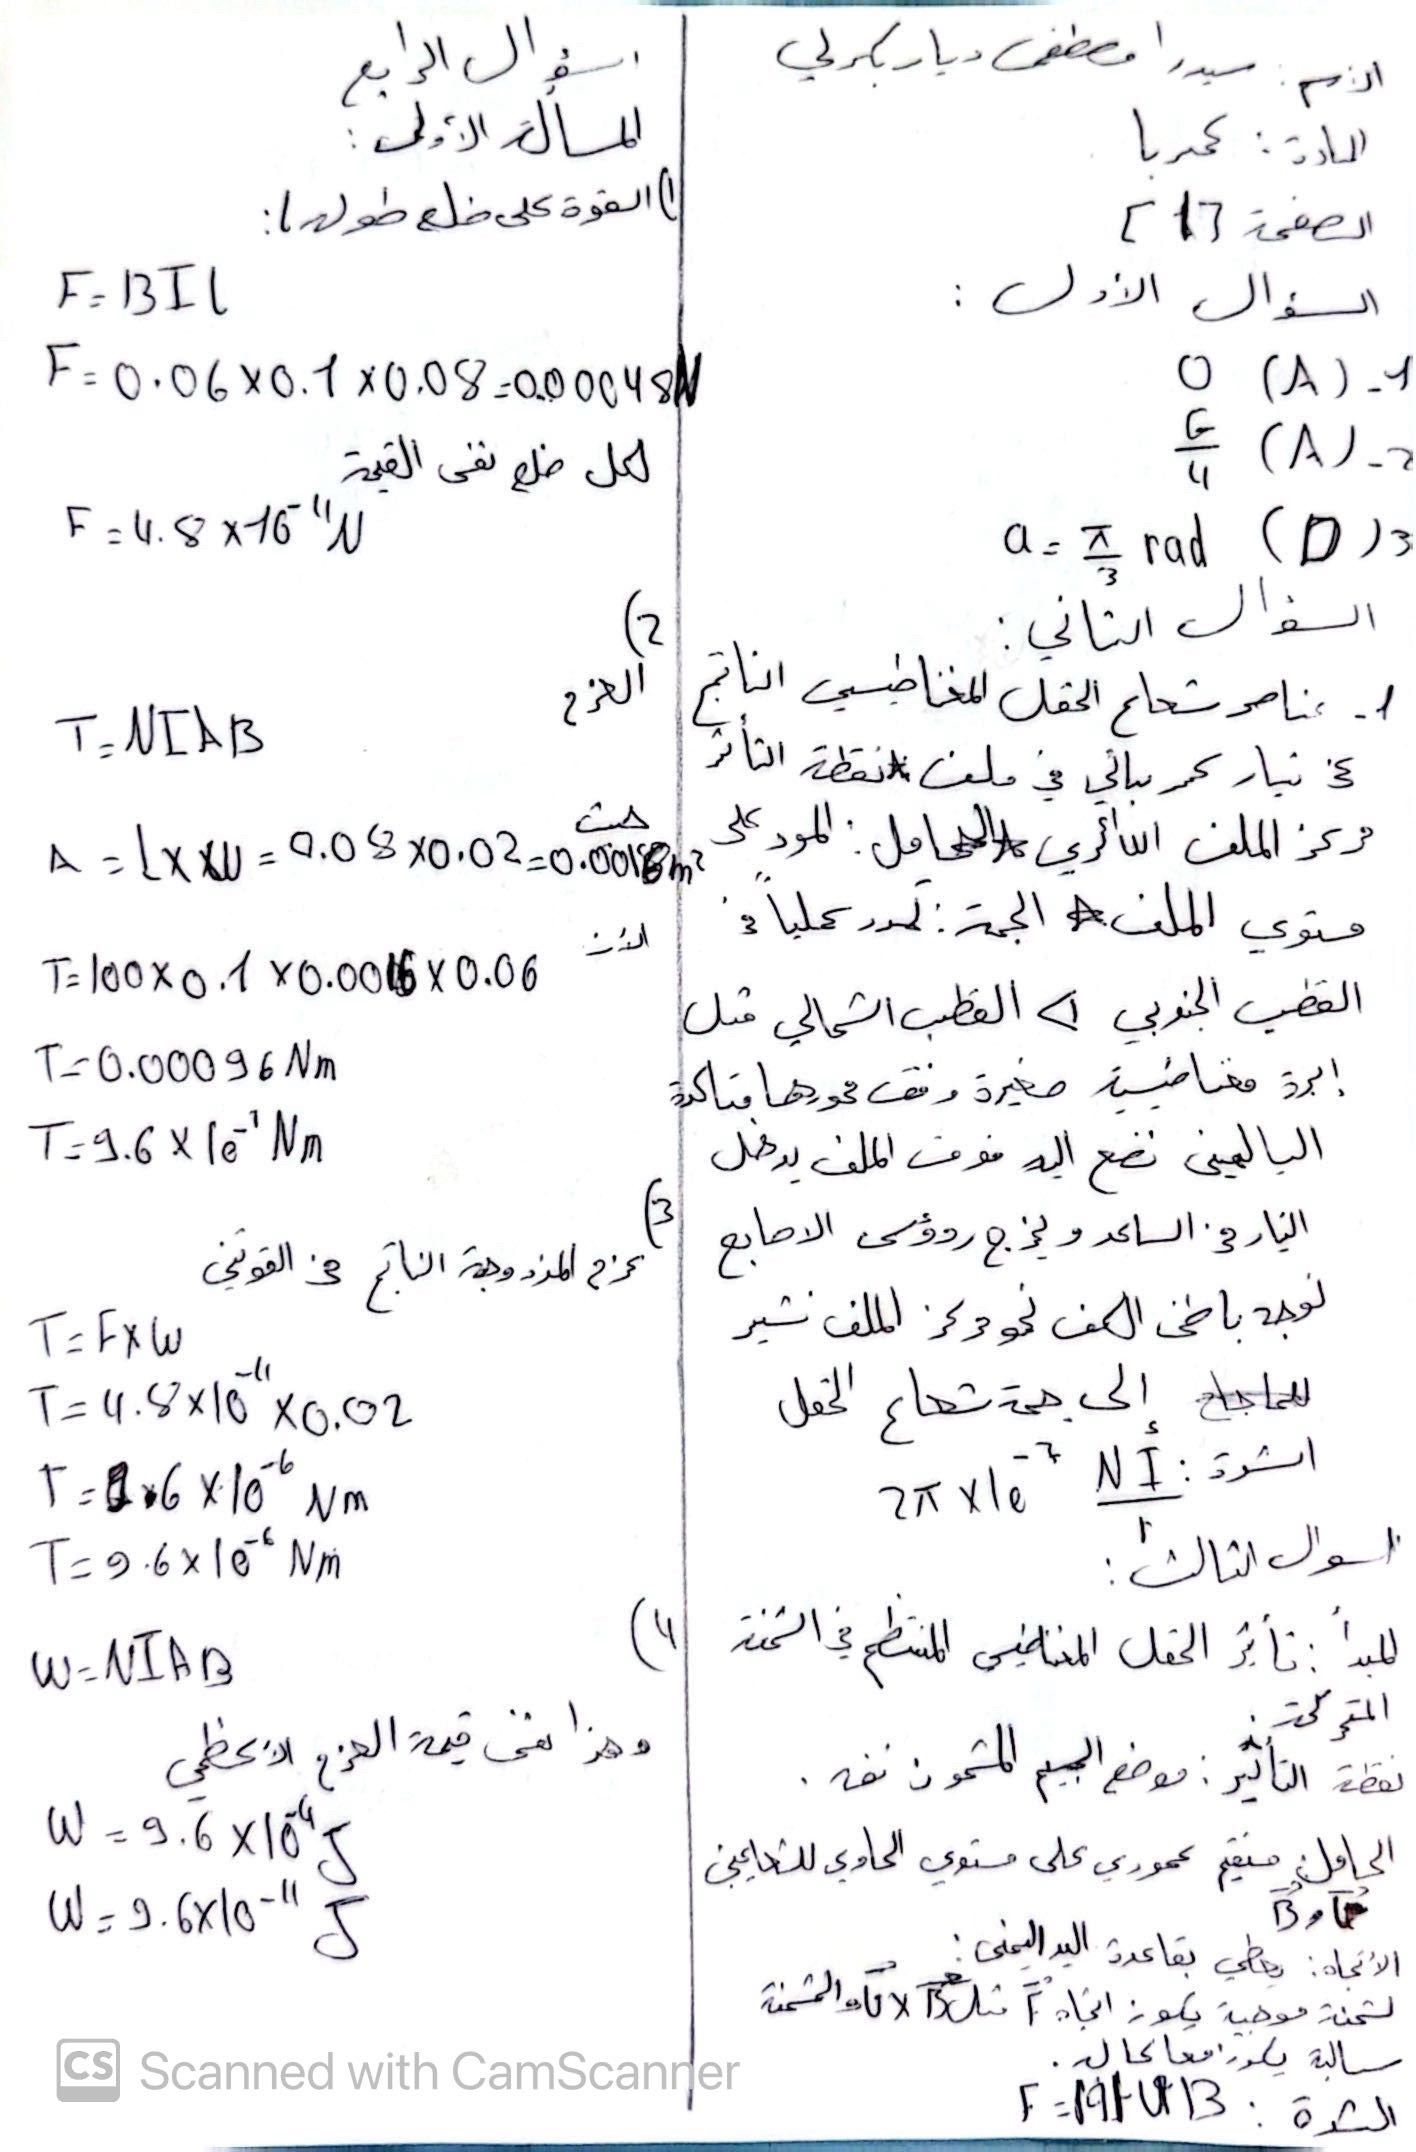 الاسم: سيدرا مصطفى ديار بكرلي
المادة: كهربا
الصفحة [1]
السؤال الأول:
1- (A) 0
2- (A) G/4
3) (D) a = π/3 rad
السؤال الثاني:
1- عناصر شعاع الحقل المغناطيسي الناتج
عن تيار كهربائي في ملف * نقطة التأثر
مركز الملف الدائري * الحامل: العمود على
مستوي الملف * الجهة: تحدد عملياً في
القطب الجنوبي > القطب الشمالي قبل
إبرة مغناطيسية صغيرة وفق محورها
اليد اليمنى نضع اليد فوق الملف يدخل
التيار في الساعد ويخرج رووس الاصابع
نوجه باطن الكف نحو مركز الملف نشير
إلى جهة شعاع الحقل
الشدة: 2π x 10⁻⁷ NI/r
السوال الثالث:
المبدأ: تأثير الحقل المغناطيسي المنتظم في الشحنة
المتحركة.
نقطة التأثير: موضع الجسيم المشحون نفه.
الحامل: مستقيم عمودي على مستوي الحاوي للشعاعين
B و v
الاتجاه: يعطي بقاعدة اليد اليمنى:
لشحنة موجبة يكون اتجاه F مثل v x B والشحنة
سالبة يكون
الشدة: F = |q| v B
السؤال الرابع
المسألة الأولى:
1) القوة على ضلع طوله l:
F = B I l
F = 0.06 x 0.1 x 0.08 = 0.00048 N
لكل ضلع نفس القيمة
F = 4.8 x 10⁻⁴ N
2)
العزم
T = NIAB
حيث
A = L x w = 0.08 x 0.02 = 0.0016 m²
الآن
T = 100 x 0.1 x 0.0016 x 0.06
T = 0.00096 Nm
T = 9.6 x 10⁻¹ Nm
3)
عزم المزدوجة الناتج عن القوتين
T = F x w
T = 4.8 x 10⁻⁴ x 0.02
T = 9.6 x 10⁻⁶ Nm
T = 9.6 x 10⁻⁶ Nm
4)
W = NIAB
وهذا نفس قيمة العزم الأعظمي
W = 9.6 x 10⁻⁴ J
W = 9.6 x 10⁻⁴ J
CS Scanned with CamScanner